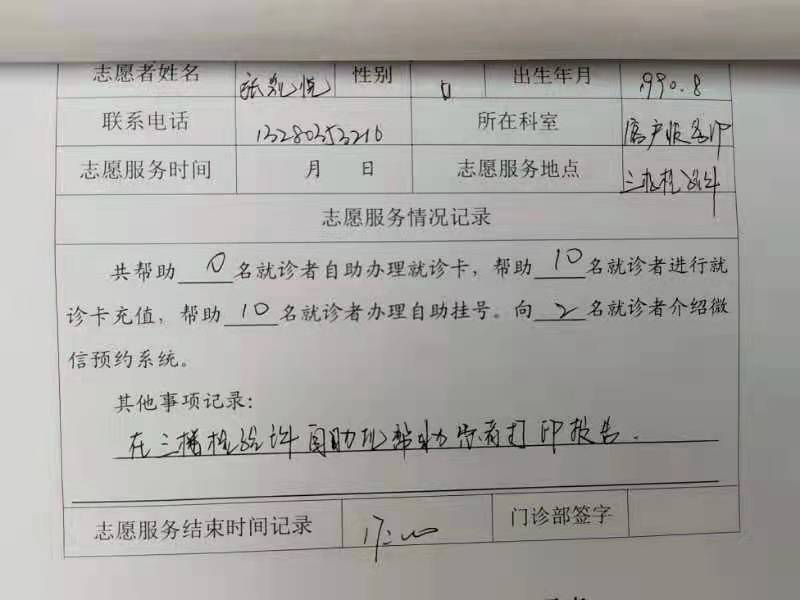 志愿者姓名 张凯悦 性别 女 出生年月 1990.8
联系电话 13280353216 所在科室
志愿服务时间 月 日 志愿服务地点 三楼检验科
志愿服务情况记录
共帮助 0 名就诊者自助办理就诊卡，帮助 10 名就诊者进行就
诊卡充值，帮助 10 名就诊者办理自助挂号。向 2 名就诊者介绍微
信预约系统。
其他事项记录：
在三楼检验科自助机帮助患者打印报告.
志愿服务结束时间记录 17:00 门诊部签字